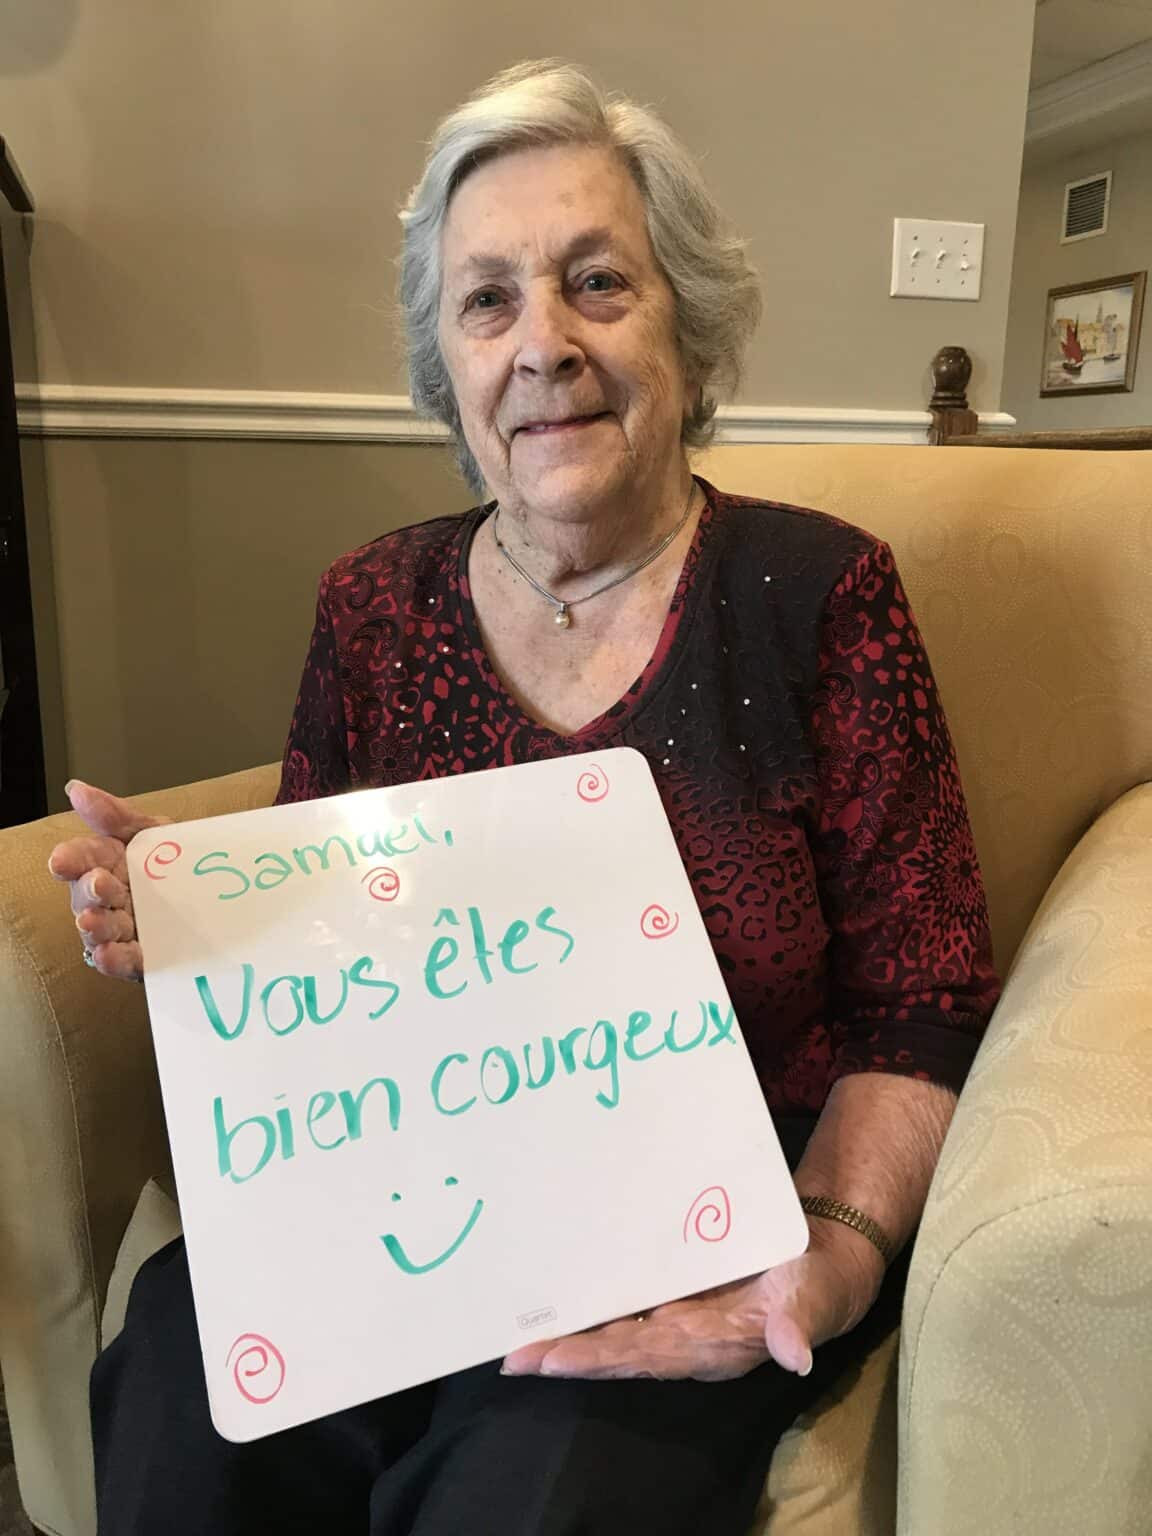 Samuel,
Vous êtes
bien courgeux
Quartet